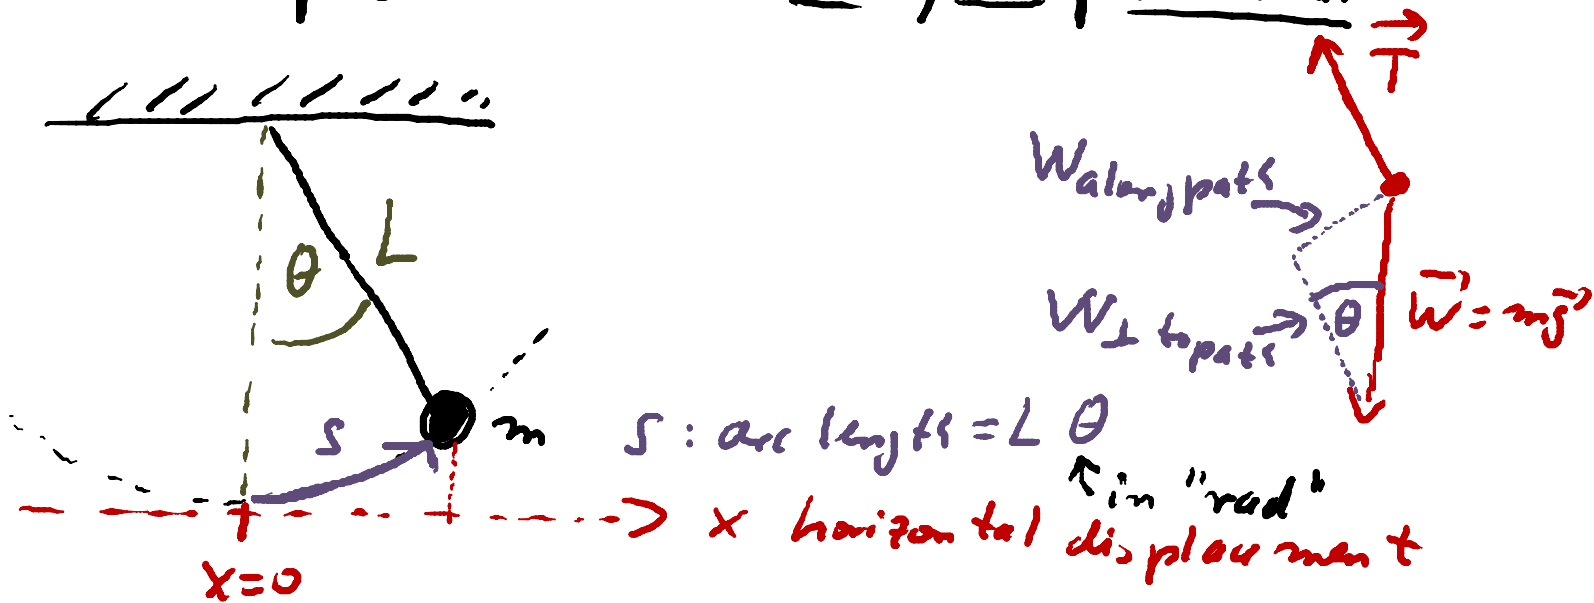 T⃗
W along path
θ
L
W⊥ to path
θ
W⃗ = mg⃗
s
m
s : arc length = L θ
in "rad"
x horizontal displacement
x=0